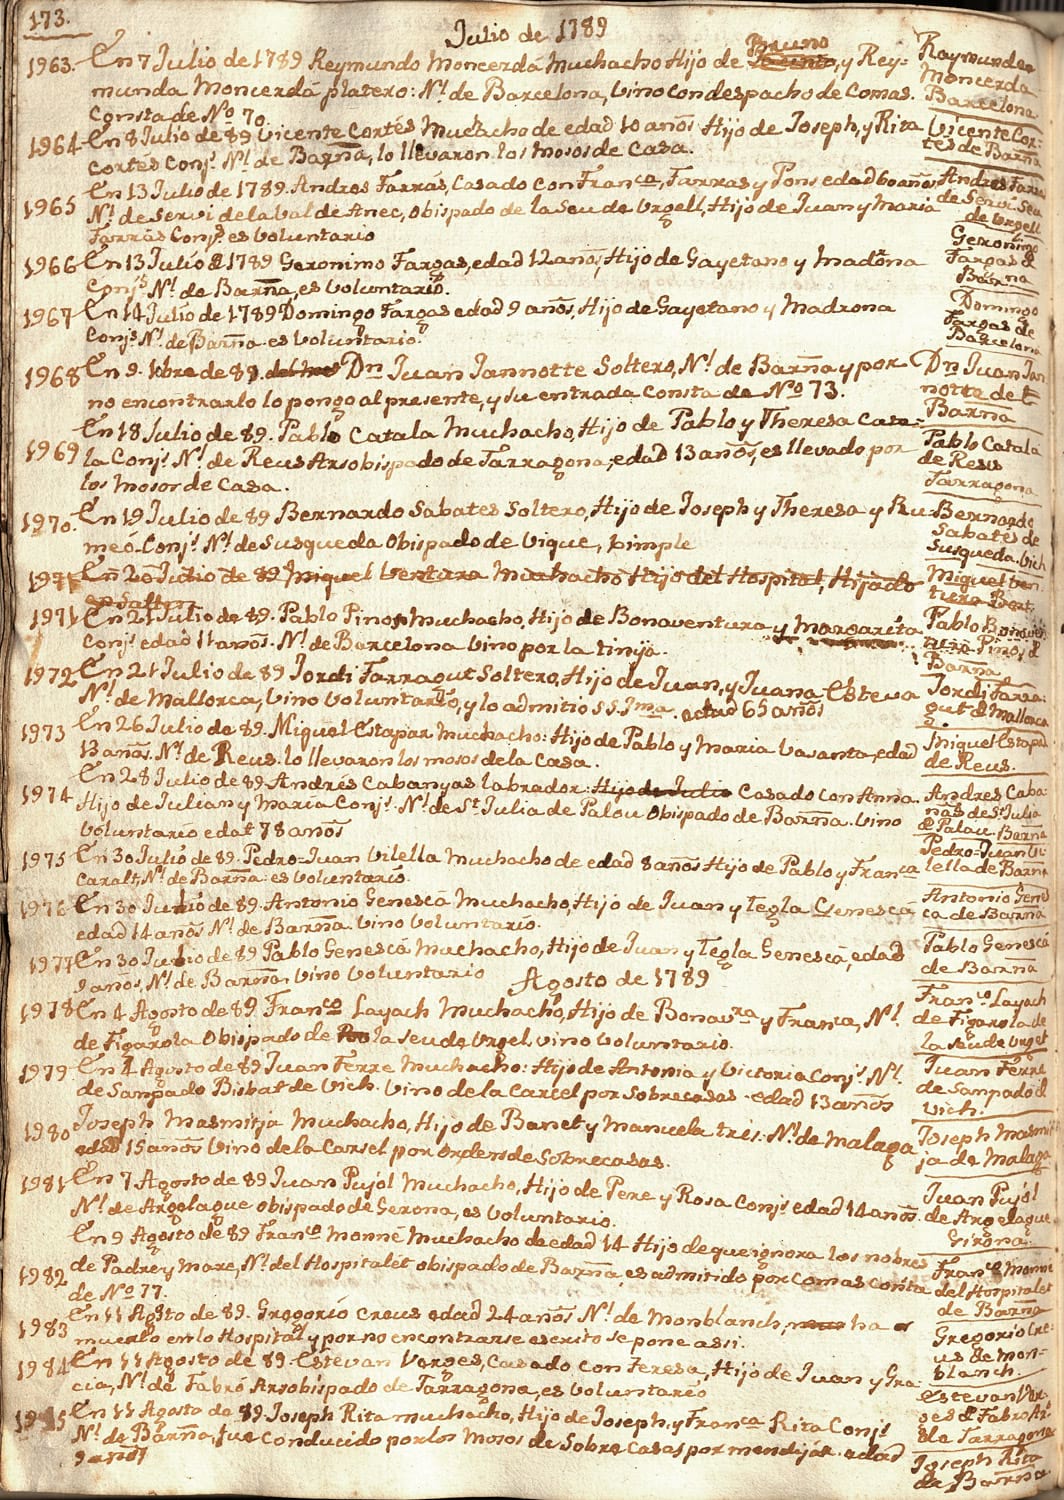 173.
Julio de 1789
1963. En 7 Julio de 1789 Reymundo Moncerdá Muchacho Hijo de Bruno, y Rey-
munda Moncerdá platero: Nl. de Barcelona, vino con despacho de Comas.
Consta de No. 70.
Raymundo
Moncerda
Barcelona
1964 En 8 Julio de 89 Vicente Cortés Muchacho de edad 10 años Hijo de Joseph, y Rita
Cortés Conjs. Nl. de Barña, lo llevaron los mosos de Casa.
Vicente Cor-
tés de Barña
1965 En 13 Julio de 1789. Andres Farrás, Casado con Franca, Farras y Pons edad 60 años
Nl. de Servi de la Val de Anec, Obispado de la Seu de Urgell, Hijo de Juan y Maria
Farrás Conjs. es Voluntario
Andres Farras
de Servi Seu
de Urgell
1966 En 13 Julio d 1789 Geronimo Fargas, edad 12 años, Hijo de Gayetano y Madrona
Conjs. Nl. de Barña, es voluntario.
Geronimo
Fargas d
Barña
1967 En 14 Julio de 1789 Domingo Fargas edad 9 años, Hijo de Gayetano y Madrona
Conjs Nl. de Barña. es Voluntario.
Domingo
Fargas de
Barcelona
1968 En 9. Xbre de 89. del mes Dn Juan Jannotte Soltero, Nl. de Barña y por
no encontrarlo lo pongo al presente, y su entrada Consta de No 73.
Dn Juan Jan
notte de
Barña
1969 En 18 Julio de 89. Pablo Catala Muchacho, Hijo de Pablo y Theresa Cata-
la Conjs. Nl. de Reus Arsobispado de Tarragona, edad 13 años, es llevado por
los mosos de Casa.
Pablo Catala
de Reus
Tarragona
1970. En 19 Julio de 89 Bernardo Sabates Soltero, Hijo de Joseph y Theresa y Ru
meó Conjs. Nl. de Susqueda Obispado de Vique, simple
Bernardo
Sabatés de
Susqueda. Vich
1971 En 20 Julio de 89 Miquel Ventura Muchacho Hijo del Hospital, Hijado
en Salten
Miquel Ven
tura Bart.
1971 En 21 Julio de 89. Pablo Pinos muchacho, Hijo de Bonaventura y Margarita
Conjs. edad 11 años. Nl. de Barcelona vino por la tinya.
Pablo Bonave
tura Pinos, d
Barña
1972 En 21 Julio de 89 Jordi Farragut Soltero, Hijo de Juan, y Juana Esteva
Nl. de Mallorca, Vino Voluntario, y lo admitio S.S. Jma. edad 65 años
Jordi Farra-
gut d Mallorca
1973 En 26 Julio de 89. Miquel Estapar Muchacho: Hijo de Pablo y Maria Vasanta, edad
13 años. Nl. de Reus. lo llevaron los mosos de la Casa.
Miquel Estapad
de Reus.
1974 En 28 Julio de 89. Andrés Cabanyas labrador: Hijo de Julio Casado con Anna.
Hijo de Julian y Maria Conjs. Nl. de St. Julia de Palou Obispado de Barña. Vino
Voluntario edat 78 años
Andres Caba
ñas de St Julia
d Palau. Barña
1975 En 30 Julio de 89. Pedro-Juan Vilella Muchacho de edad 8 años Hijo de Pablo y Franca
Caralt, Nl. de Barña. es Voluntario.
Pedro-Juan Vi-
lella de Barña
1976 En 30 Junio de 89. Antonio Genescá Muchacho, Hijo de Juan y Tegla Genescá
edad 14 años Nl. de Barña. Vino Voluntario.
Antonio Genes
ca de Barña
1977 En 30 Julio de 89 Pablo Genescá Muchacho, Hijo de Juan y Tegla Genescá, edad
9 años, Nl. de Barña. Vino Voluntario
Pablo Genescá
de Barña
Agosto de 1789
1978 En 4 Agosto de 89. Franco Layach Muchacho, Hijo de Bonavra y Franca, Nl.
de Figarola Obispado de la Seu de Urgel, vino voluntario.
Franco Layach
de Figarola de
la Seu de Urgel
1979 En 4 Agosto de 89 Juan Ferre Muchacho: Hijo de Antonia y Victoria Conjs. Nl.
de Sampado Bisbat de Vich. Vino de la Carcel por Sobrecasas. edad 13 años
Juan Ferré
de Sampado d
Vich.
1980 Joseph Masmitja Muchacho, Hijo de Banet y Manuela tris. Nl. de Malaga
edad 15 años Vino de la Carsel por Orden de Sobrecasas.
Joseph Masmit
ja de Malaga
1981 En 7 Agosto de 89 Juan Pujol Muchacho, Hijo de Pere y Rosa Conjs. edad 14 años.
Nl. de Argelague Obispado de Gerona, es Voluntario.
Juan Pujol
de Argelague
Girona.
1982 En 9 Agosto de 89 Franco Monné Muchacho de edad 14 Hijo de que ignora los nobres
de Padre y Mare, Nl. del Hospitalét obispado de Barña, es admitido por Comas Consta
de No 77.
Franco Monné
del Hospitalet
de Barña
1983 En 11 Agosto de 89. Gregorio Creus edad 24 años Nl. de Monblanch, ha
muerto en lo Hospital, y por no encontrarse escrito se pone assi.
Gregorio Cre-
us de Mon-
blanch.
1984 En 11 Agosto de 89. Estevan Verges, Casado con Teresa, Hijo de Juan y Gra-
cia, Nl. de Fabró Arsobispado de Tarragona, es Voluntario
Estevan Ver-
ges d Fabro Ar
de Tarragona
1985 En 11 Agosto de 89. Joseph Rita muchacho, Hijo de Joseph, y Franca Rita Conjs
Nl. de Barña, fue conducido por los Mosos de Sobre Casas por mendijar. edad
9 años
Joseph Rita
de Barña